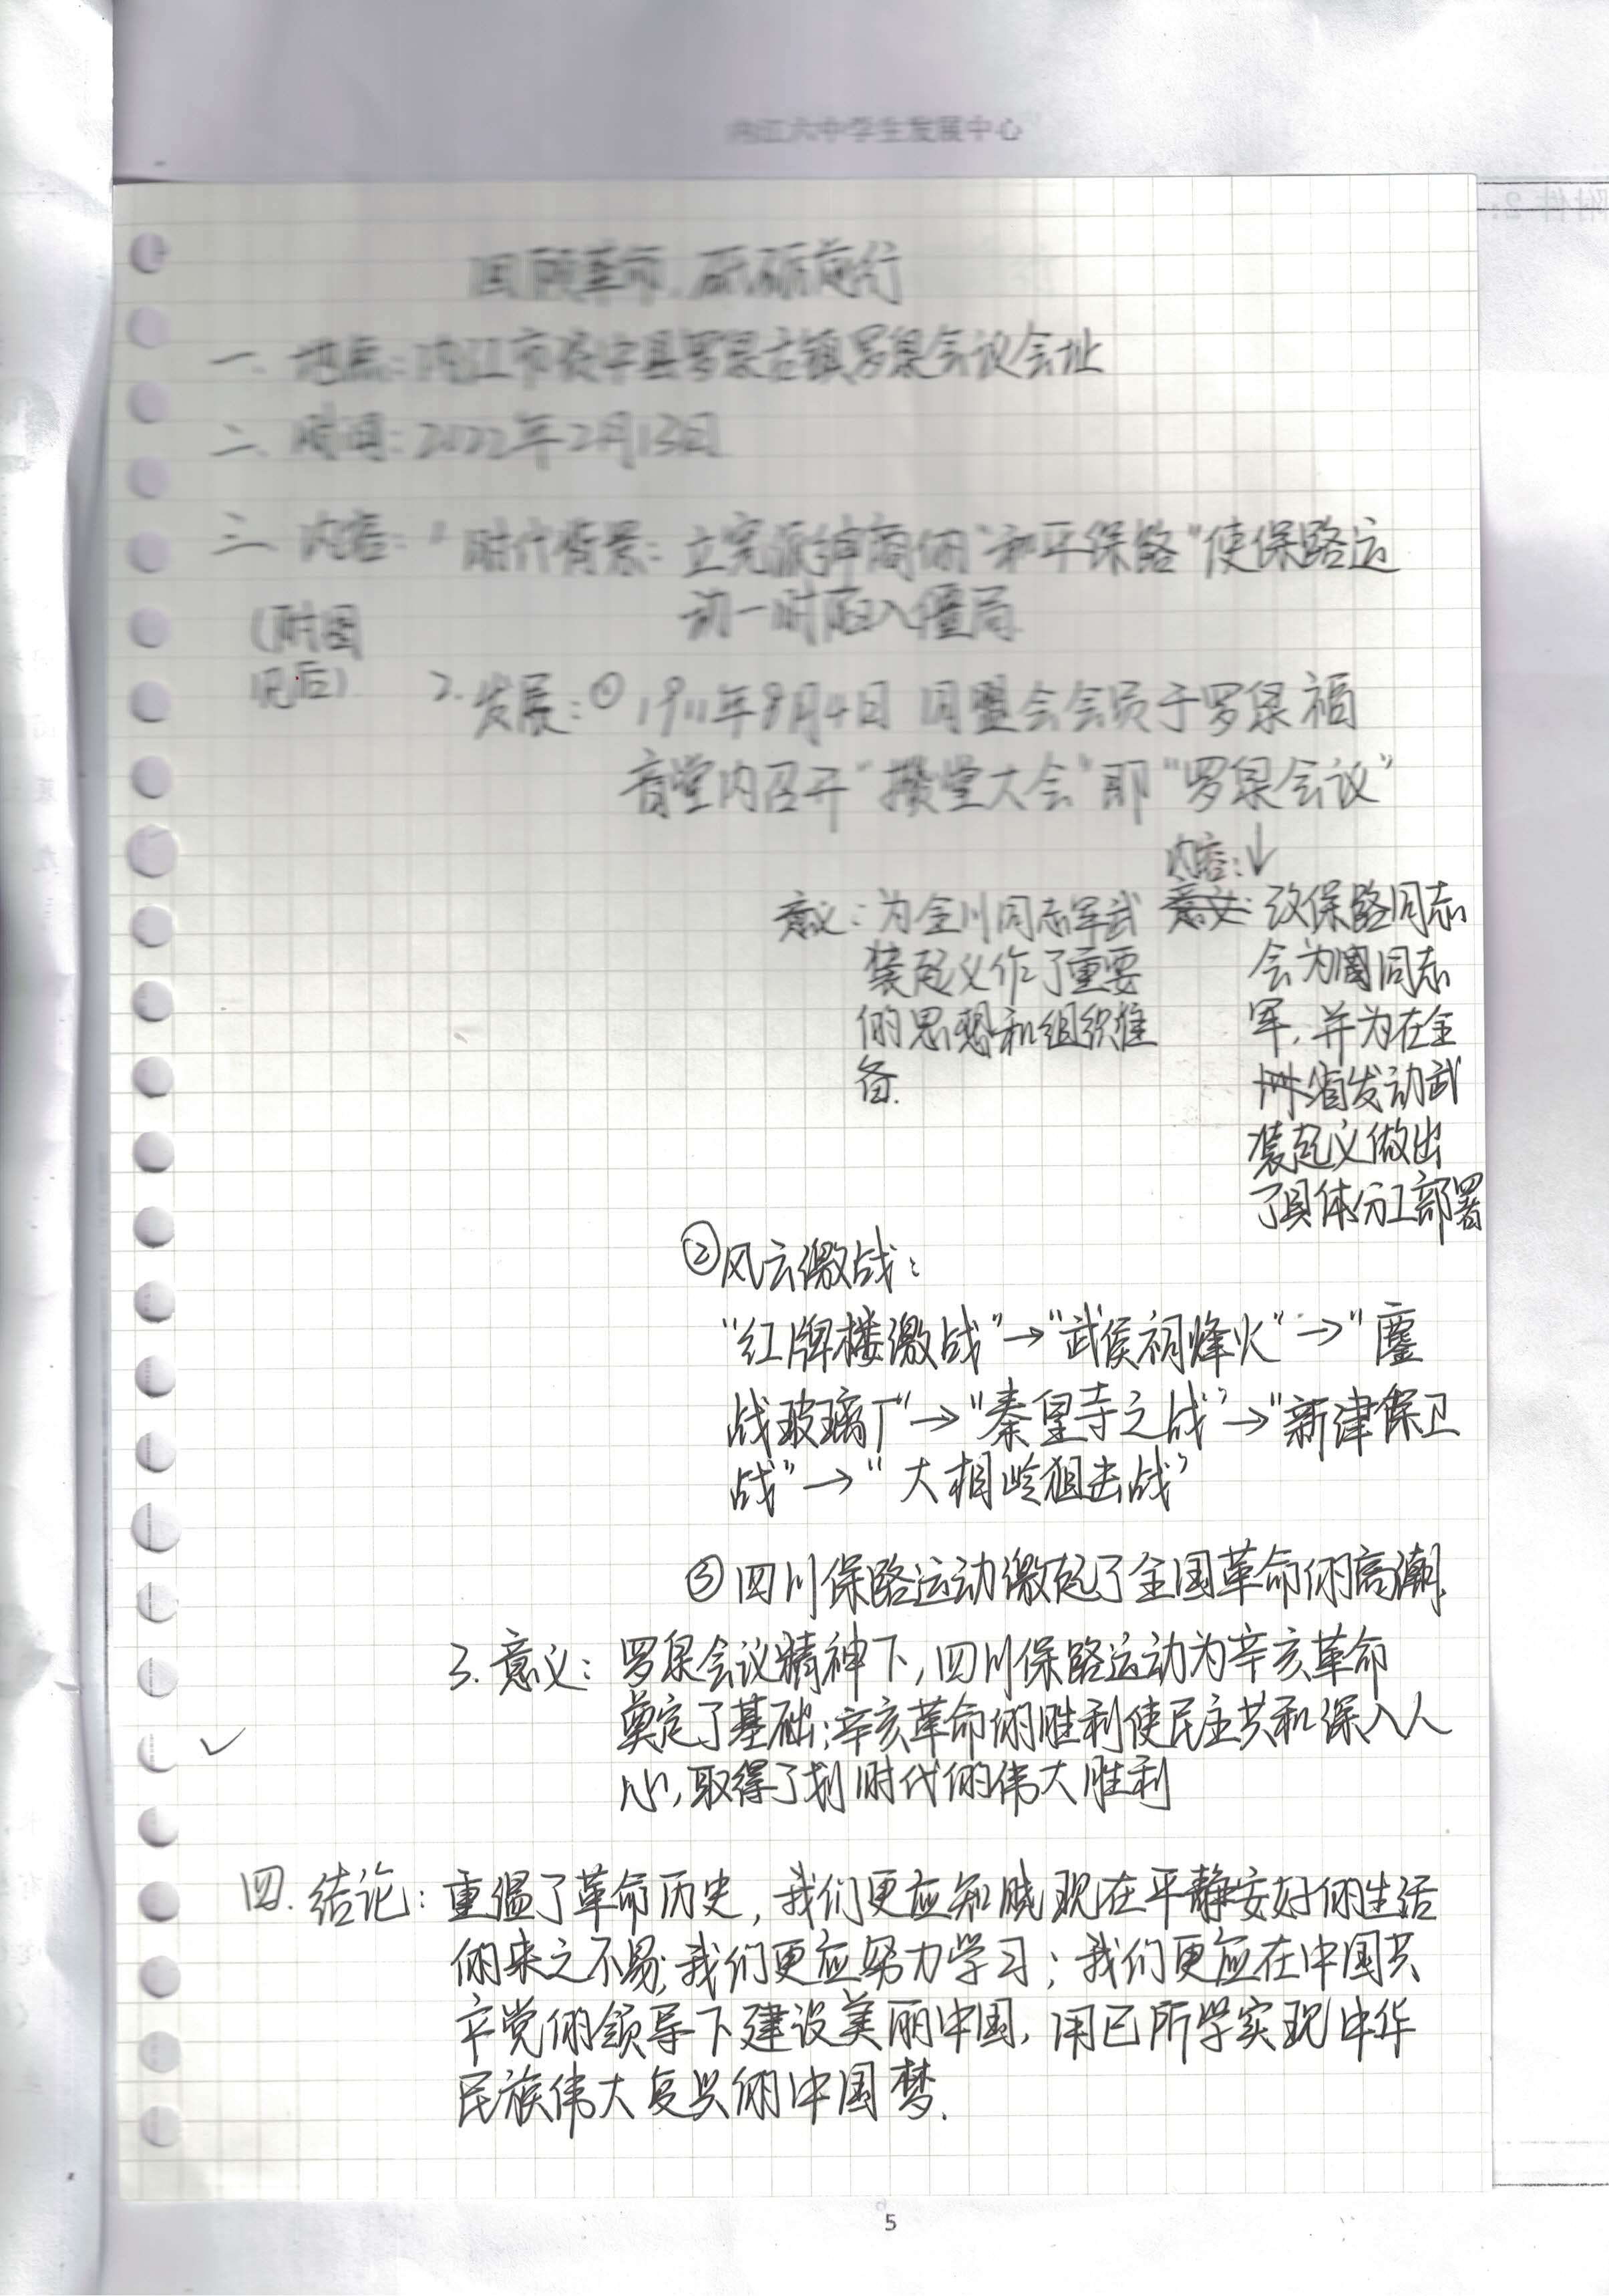 内江六中学生发展中心
回顾革命、砥砺前行
一、地点:内江市资中县罗泉古镇罗泉会议会址
二、时间:2022年2月13日
三、内容: 1.时代背景:立宪派绅商的“和平保路”使保路运
动一时陷入僵局.
(附图
见后).
2.发展:①1911年8月4日 同盟会会员于罗泉福
音堂内召开“攒堂大会”即“罗泉会议”
内容:↓
意义:为全川同志军武
装起义作了重要
的思想和组织准
备.
改保路同志
会为同志
军,并为在全
省发动武
装起义做出
了具体分工部署
②风云激战:
“红牌楼激战”→“武侯祠烽火”→“鏖
战玻璃厂”→“秦皇寺之战”→“新津保卫
战”→“大相岭狙击战”
③四川保路运动激起了全国革命的高潮.
3.意义:罗泉会议精神下,四川保路运动为辛亥革命
奠定了基础;辛亥革命的胜利使民主共和深入人
心,取得了划时代的伟大胜利
四.结论:重温了革命历史,我们更应知晓现在平静安好的生活
的来之不易;我们更应努力学习;我们更应在中国共
产党的领导下建设美丽中国,用己所学实现中华
民族伟大复兴的中国梦.
5